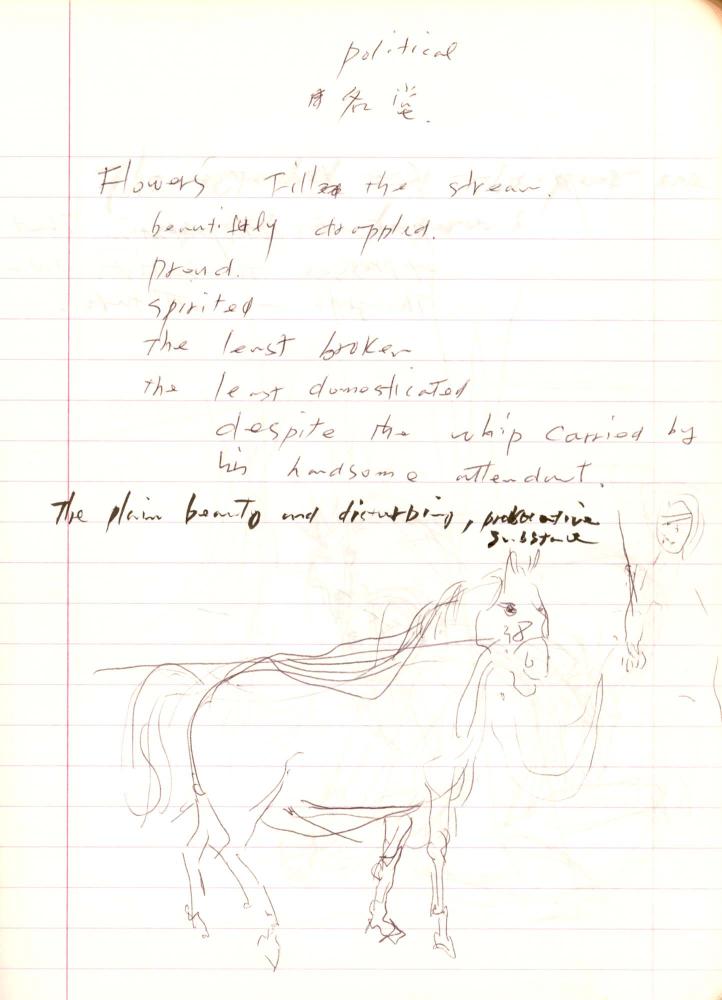 political
名堂.
Flowers Fill the stream.
beautiftly drappled.
proud.
spirited
the least broken
the least domesticated
despite the whip carried by
his handsome attendant.
The plain beauty and disturbing, provocative
substance